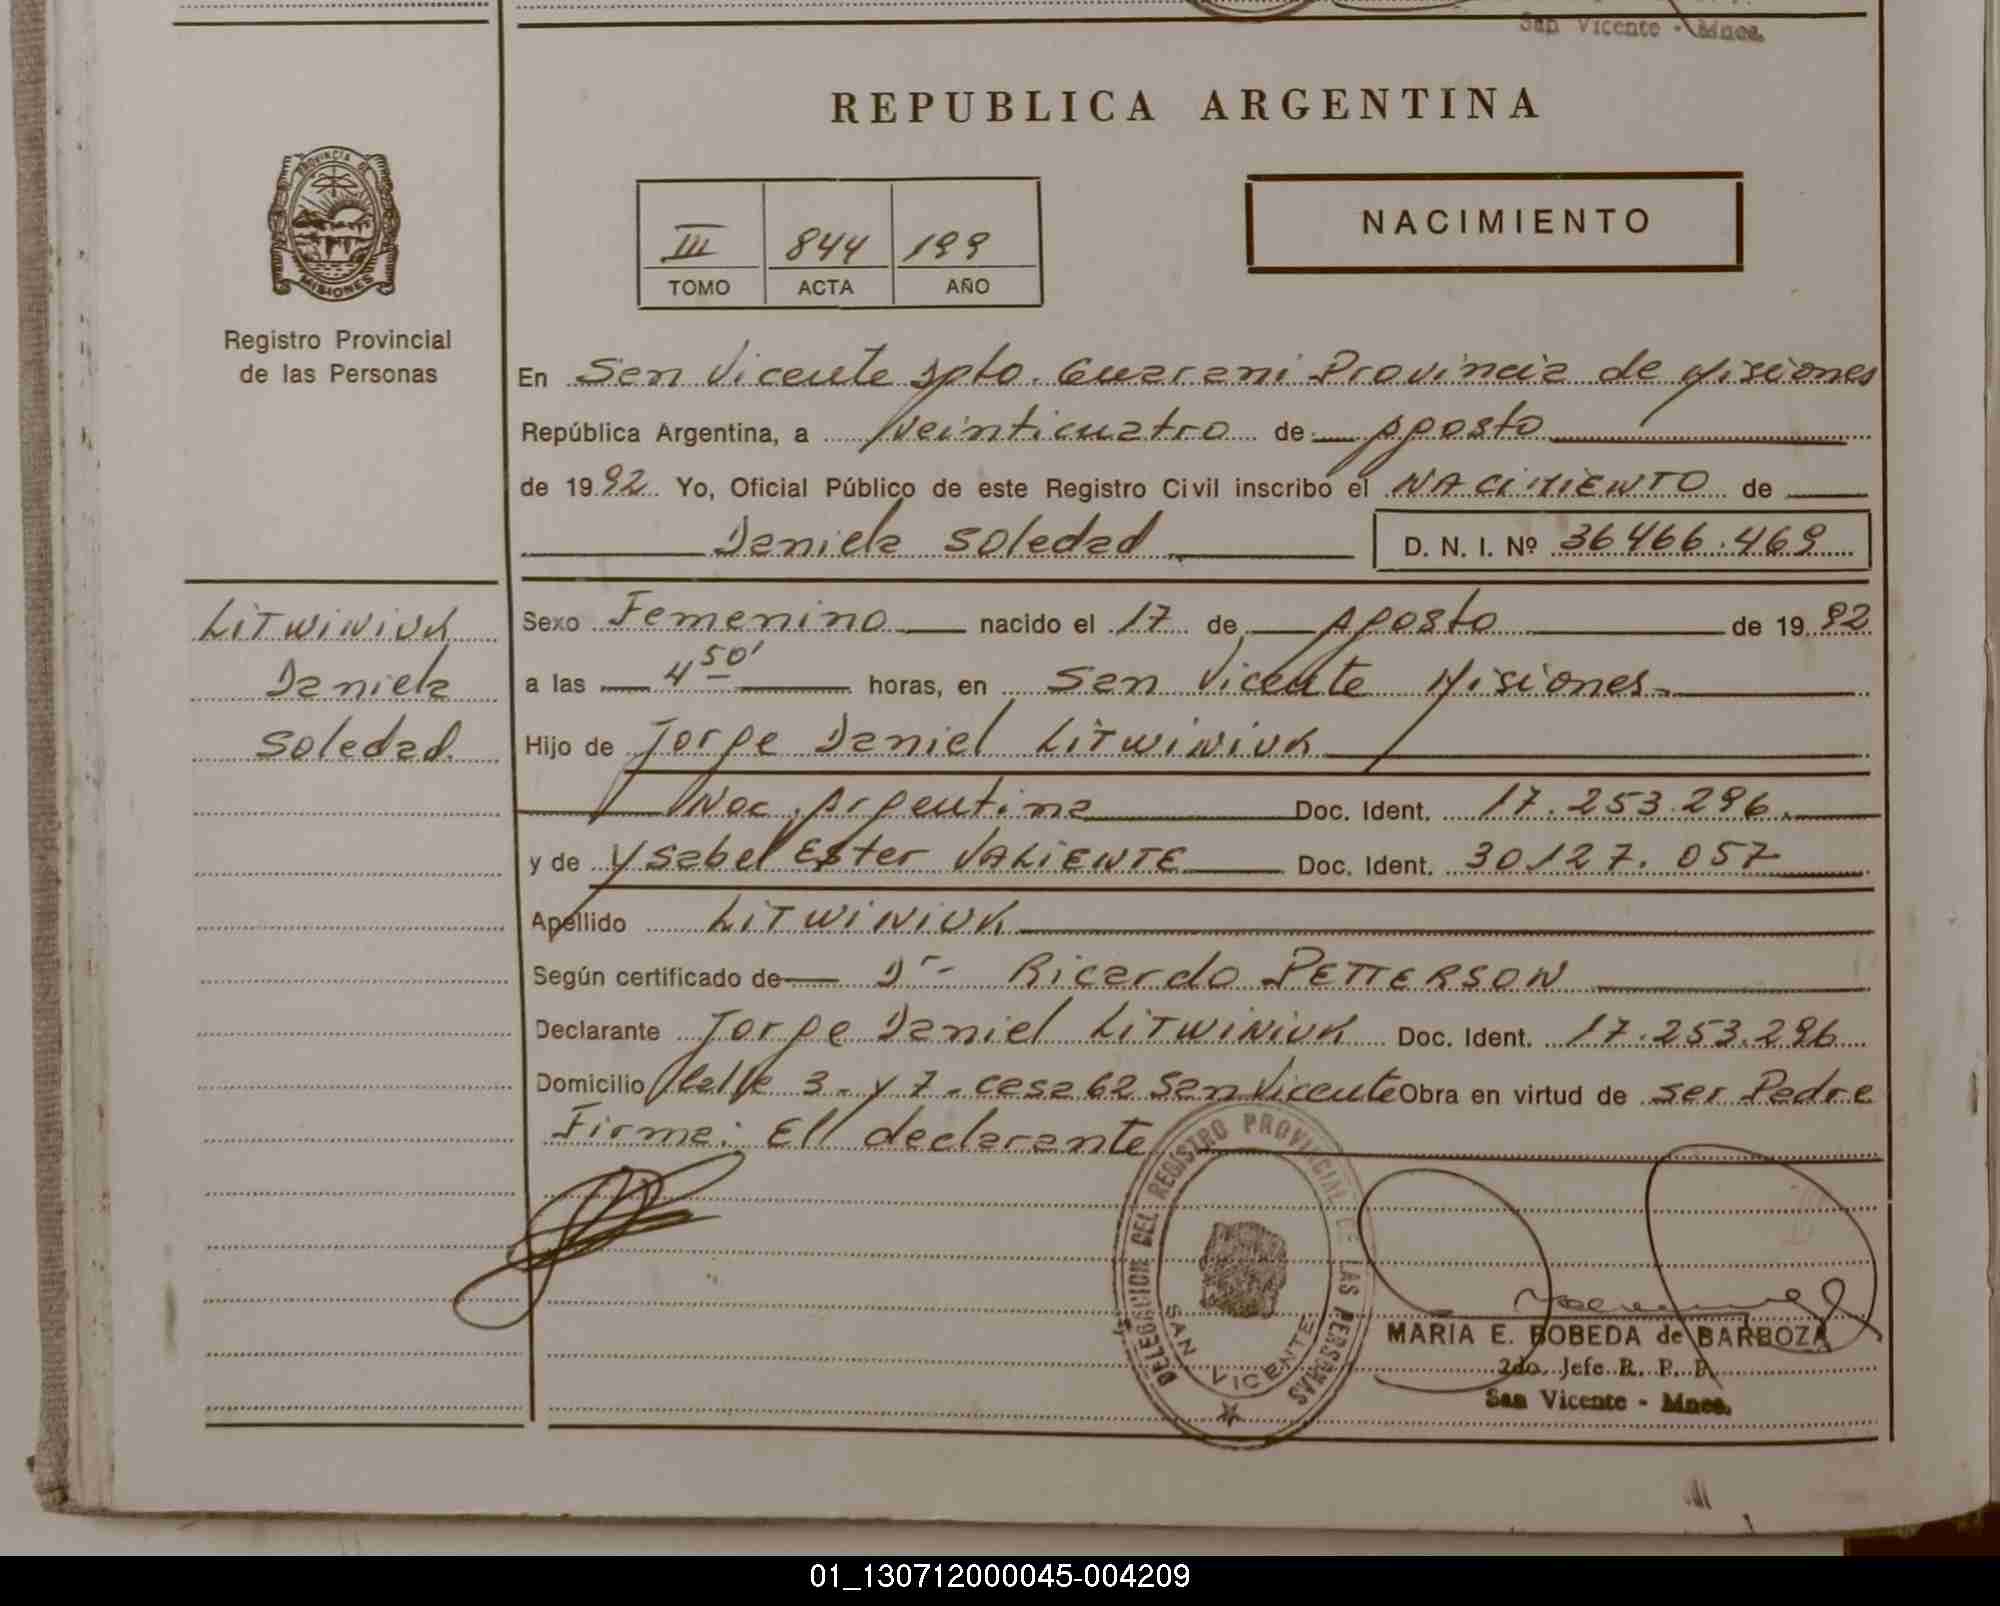 San Vicente - Mnes.
REPUBLICA ARGENTINA
PROVINCIA DE
MISIONES
Registro Provincial
de las Personas
III 844 199
TOMO ACTA AÑO
NACIMIENTO
En San Vicente Dpto. Guarani Provincia de Misiones
República Argentina, a veinticuatro de Agosto
de 1992 Yo, Oficial Público de este Registro Civil inscribo el NACIMIENTO de
Daniela Soledad D. N. I. Nº 36466.469
LiTWiNiUK
Daniela
Soledad.
Sexo Femenino nacido el 17 de Agosto de 1992
a las 4 50' horas, en San Vicente Misiones.
Hijo de Jorge Daniel LiTWiNiUK
Nac. Argentina Doc. Ident. 17.253.296.
y de Ysabel Ester VALiENTE Doc. Ident. 30127.057
Apellido LiTWiNiUK
Según certificado de Dr. Ricardo PETTERSON
Declarante Jorge Daniel LiTWiNiUK Doc. Ident. 17.253.296
Domicilio Calle 3 - y 7 - casa 62 San Vicente Obra en virtud de ser Padre
Firma: Ell declarante
DELEGACION DEL REGISTRO PROVINCIAL DE LAS PERSONAS
SAN VICENTE
MARIA E. BOBEDA de BARBOZA
2do. Jefe R. P. P.
San Vicente - Mnes.
01_130712000045-004209